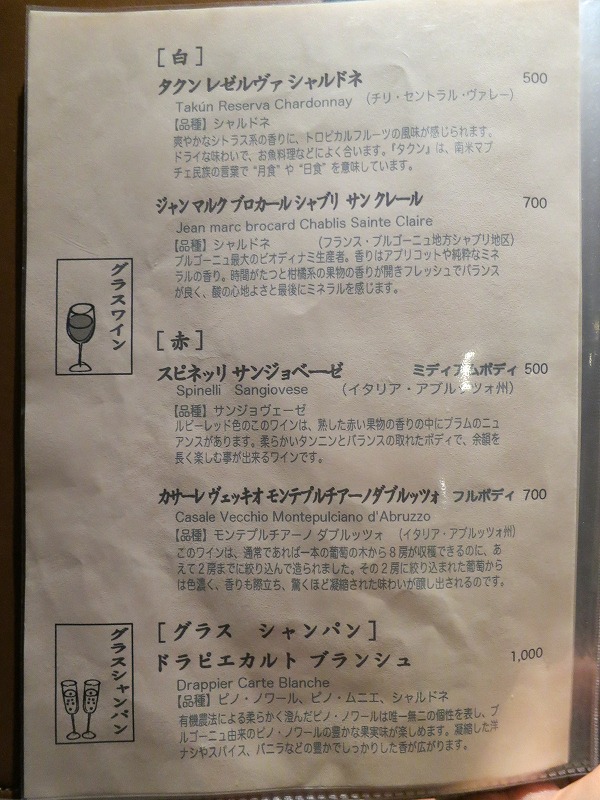 [ 白 ]
タクン レゼルヴァ シャルドネ 500
Takún Reserva Chardonnay (チリ・セントラル・ヴァレー)
【品種】シャルドネ
爽やかなシトラス系の香りに、トロピカルフルーツの風味が感じられます。
ドライな味わいで、お魚料理などによく合います。『タクン』は、南米マプ
チェ民族の言葉で“月食”や“日食”を意味しています。
ジャン マルク ブロカール シャブリ サン クレール 700
Jean marc brocard Chablis Sainte Claire
【品種】シャルドネ (フランス・ブルゴーニュ地方シャブリ地区)
ブルゴーニュ最大のビオディナミ生産者。香りはアプリコットや純粋なミネ
ラルの香り。時間がたつと柑橘系の果物の香りが開きフレッシュでバランス
が良く、酸の心地よさと最後にミネラルを感じます。
グラスワイン
[ 赤 ]
スピネッリ サンジョベーゼ ミディアムボディ 500
Spinelli Sangiovese (イタリア・アブルッツォ州)
【品種】サンジョヴェーゼ
ルビーレッド色のこのワインは、熟した赤い果物の香りの中にプラムのニュ
アンスがあります。柔らかいタンニンとバランスの取れたボディで、余韻を
長く楽しむ事が出来るワインです。
カサーレ ヴェッキオ モンテプルチアーノダブルッツォ フルボディ 700
Casale Vecchio Montepulciano d'Abruzzo
【品種】モンテプルチアーノ ダブルッツォ (イタリア・アブルッツォ州)
このワインは、通常であれば一本の葡萄の木から8房が収穫できるのに、あ
えて2房までに絞り込んで造られました。その2房に絞り込まれた葡萄から
は色濃く、香りも際立ち、驚くほど凝縮された味わいが醸し出されるのです。
グラスシャンパン
[ グラス シャンパン ]
ドラピエカルト ブランシュ 1,000
Drappier Carte Blanche
【品種】ピノ・ノワール、ピノ・ムニエ、シャルドネ
有機農法による柔らかく澄んだピノ・ノワールは唯一無二の個性を表し、ブ
ルゴーニュ由来のピノ・ノワールの豊かな果実味が楽しめます。凝縮した洋
ナシやスパイス、バニラなどの豊かでしっかりした香が広がります。